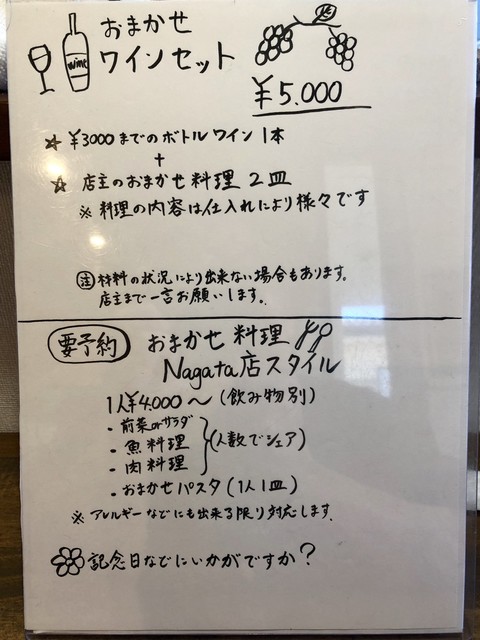 おまかせ
ワインセット
wine
¥5.000
☆ ¥3000までのボトルワイン1本
+
☆ 店主のおまかせ料理 2皿
※ 料理の内容は仕入れにより様々です
注 材料の状況により出来ない場合もあります。
店主まで一言お願いします。
要予約 おまかせ料理
Nagata店スタイル
1人¥4.000〜(飲み物別)
・前菜orサラダ
・魚料理
・肉料理
(人数でシェア)
・おまかせパスタ(1人1皿)
※ アレルギーなどにも出来る限り対応します。
記念日などにいかがですか?